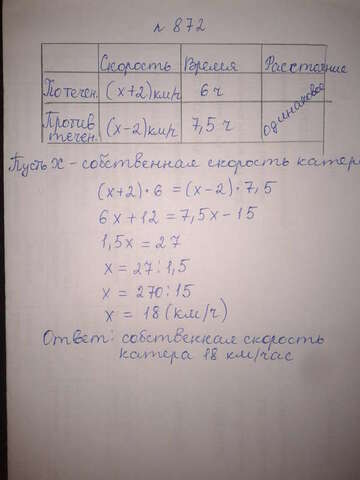 № 872
Скорость Время Расстояние
По течен. (x+2)км/ч 6 ч одинаковое
Против течен. (x-2)км/ч 7,5 ч
Пусть x - собственная скорость катера
(x+2)·6 = (x-2)·7,5
6x+12 = 7,5x-15
1,5x = 27
x = 27:1,5
x = 270:15
x = 18 (км/ч)
Ответ: собственная скорость
катера 18 км/час